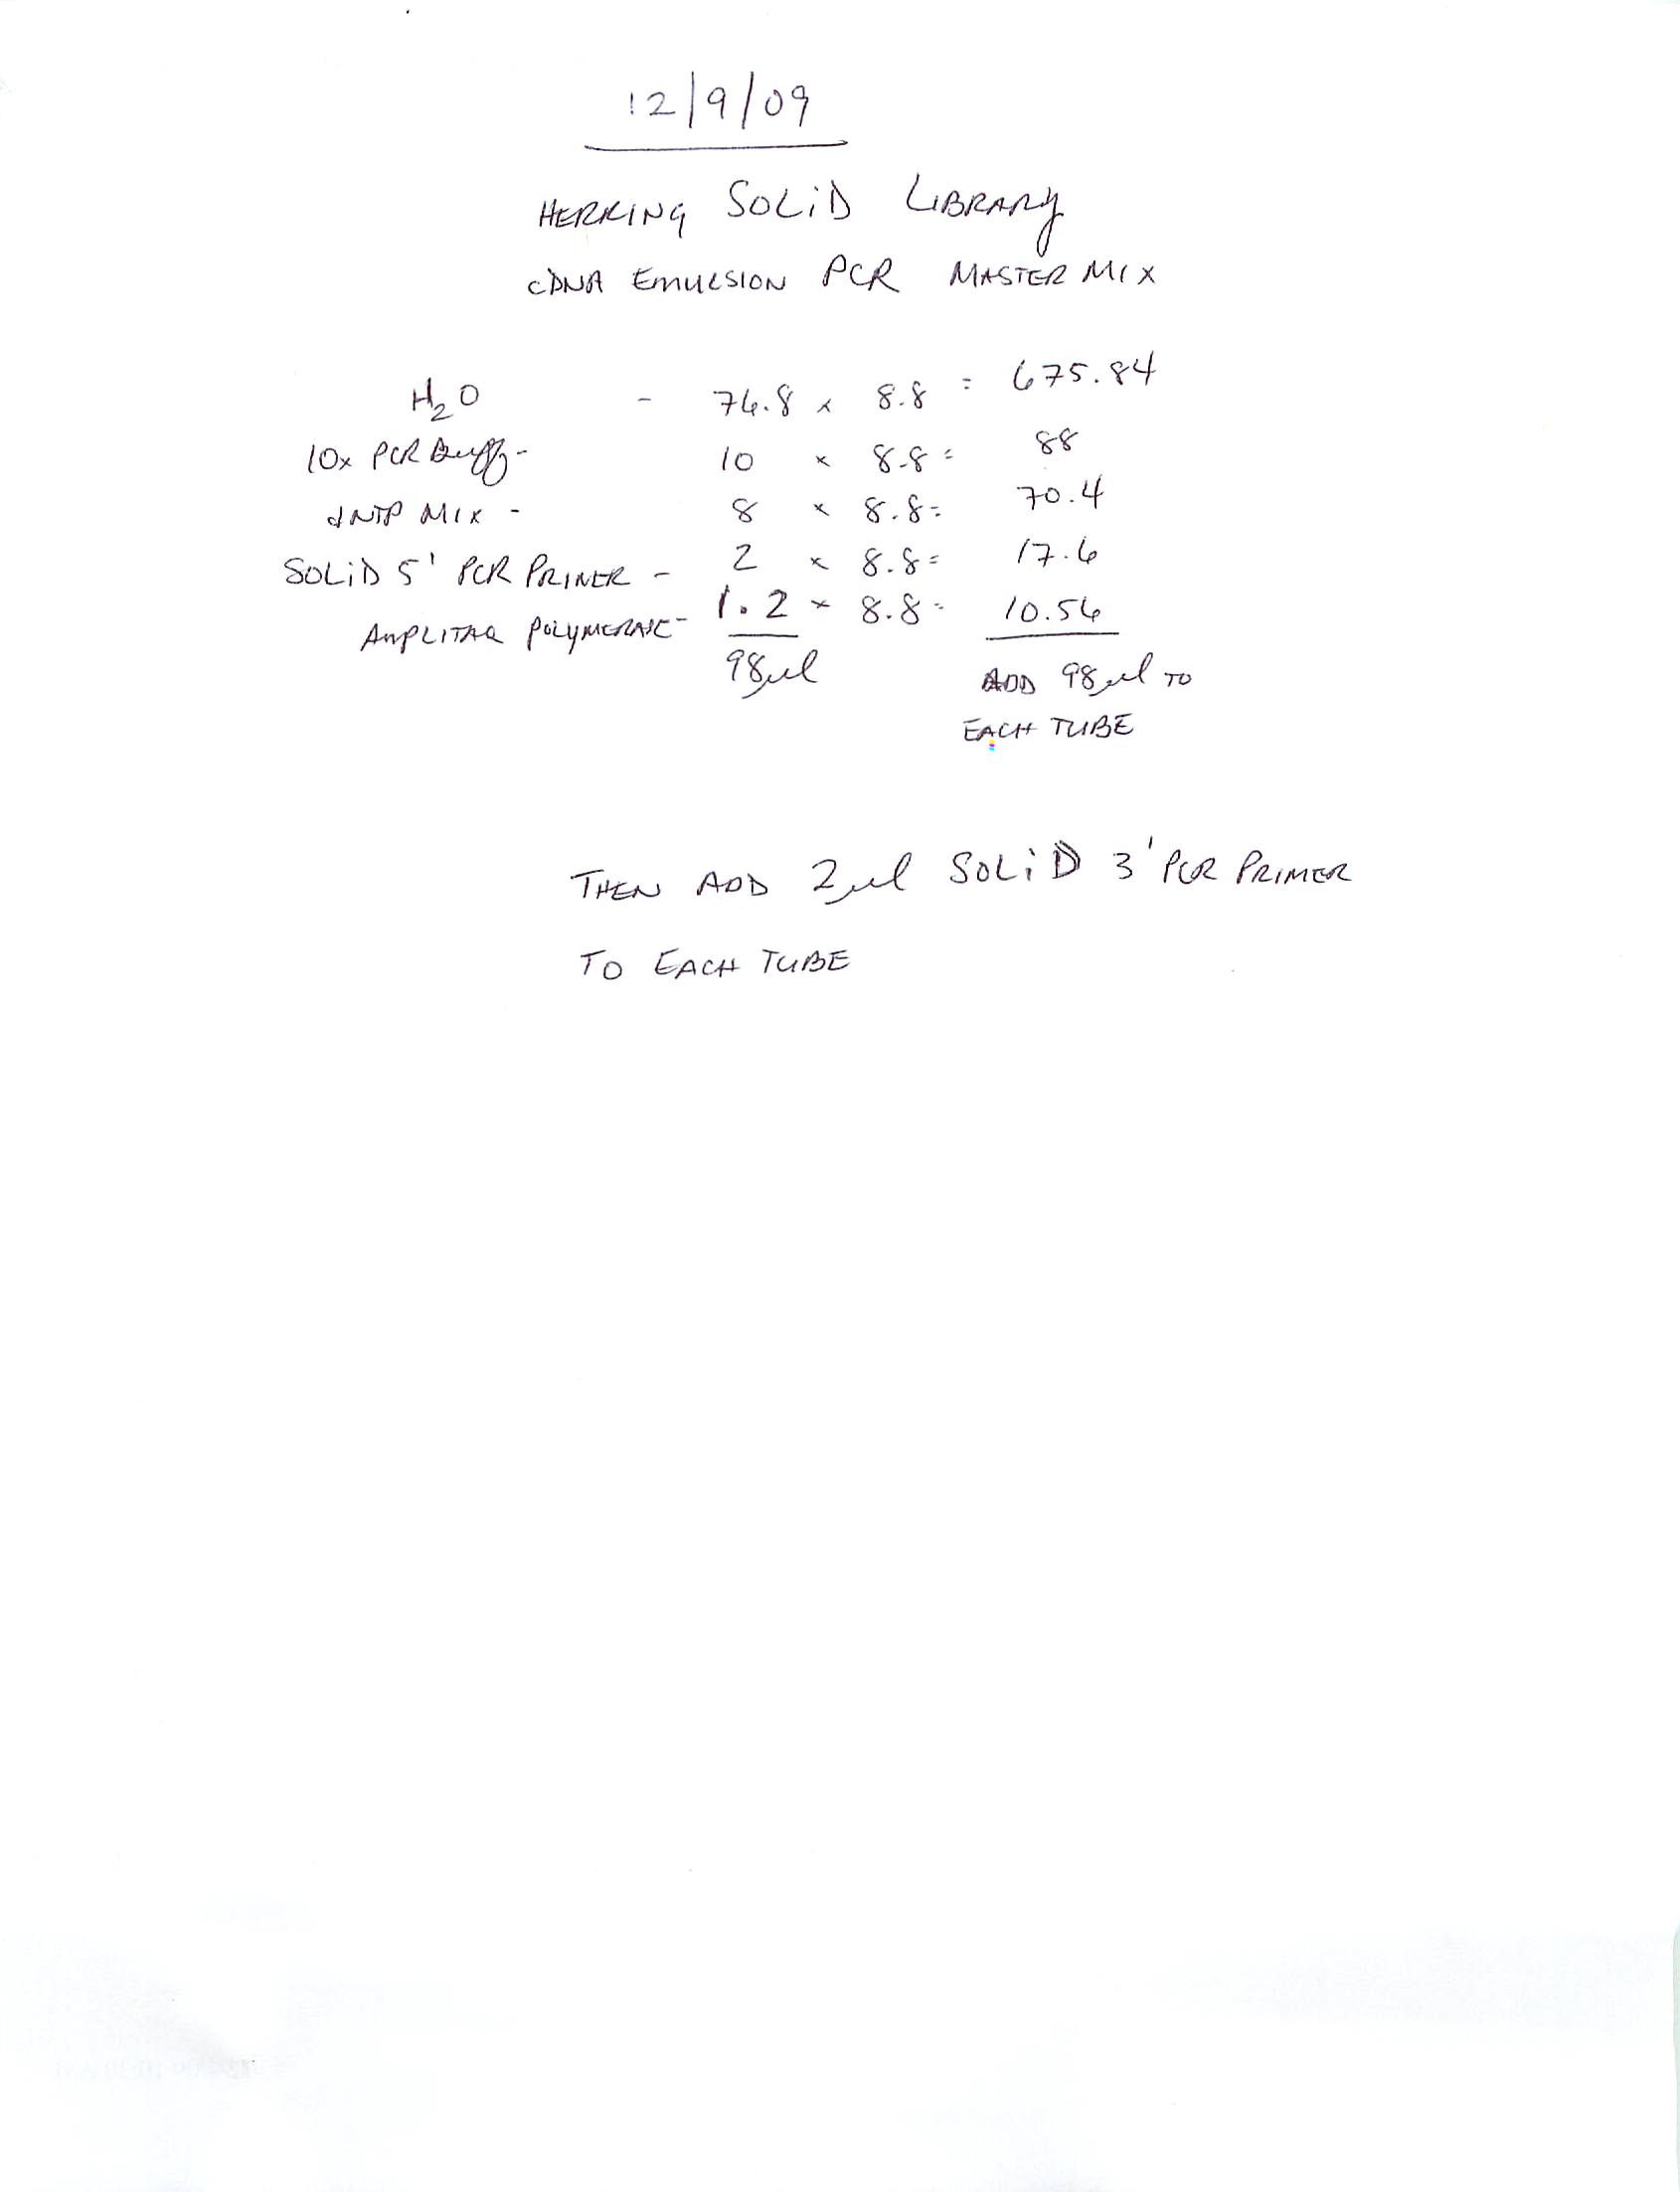 12/9/09
HERRING SOLiD LIBRARY
cDNA EMULSION PCR MASTER MIX
H2O - 76.8 x 8.8 = 675.84
10x PCR Buff - 10 x 8.8 = 88
dNTP MIX - 8 x 8.8 = 70.4
SOLiD 5' PCR PRIMER - 2 x 8.8 = 17.6
AMPLITAQ POLYMERASE - 1.2 x 8.8 = 10.56
98µl ADD 98µl TO
EACH TUBE
THEN ADD 2µl SOLiD 3' PCR PRIMER
TO EACH TUBE